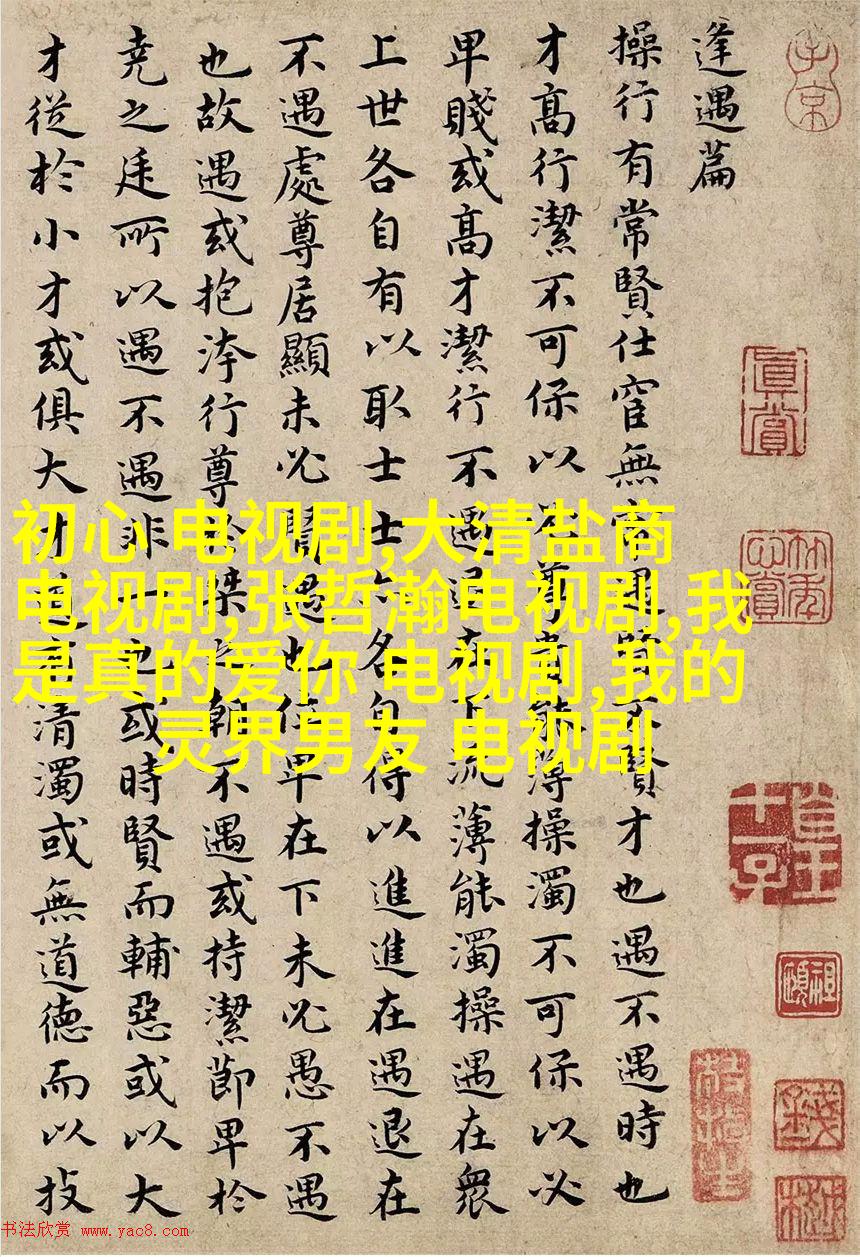 逢遇篇
操行有常賢仕宦無常遇賢不賢才也遇不遇時也
才高行潔不可保以必尊貴能薄操濁不可保以必
卑賤或高才潔行不遇退在下流薄能濁操遇在衆
上世各自有以取士士亦各自得以進進在遇退在
不遇處尊居顯未必賢遇也位卑在下未必愚不遇
也故遇或抱洿行尊於桀之朝不遇或持潔節卑於
堯之廷所以遇不遇非一也或時賢而輔惡或以大
才從於小才或俱大才道有清濁或無道德而以技
真賞
初心 电视剧,大清盐商
电视剧,张哲瀚电视剧,我
是真的爱你 电视剧,我的
灵界男友 电视剧
书法欣赏 www.yac8.com